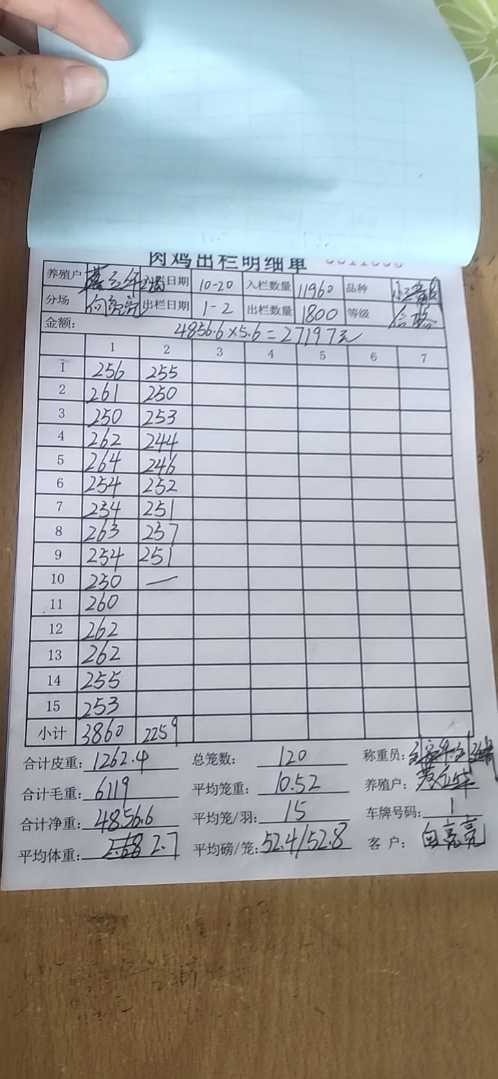 肉鸡出栏明细单
养殖户 入栏日期 10-20 入栏数量 11960 品种
分场 向亮亮 出栏日期 1-2 出栏数量 1800 等级 合格
金额: 4856.6×5.6=27197元
1 2 3 4 5 6 7
1 256 255
2 261 250
3 250 253
4 262 244
5 264 246
6 254 252
7 254 251
8 263 257
9 254 251
10 250 —
11 260
12 262
13 262
14 255
15 253
小计 3860 2259
合计皮重: 1262.4 总笼数: 120 称重员:
合计毛重: 6119 平均笼重: 10.52 养殖户:
合计净重: 4856.6 平均笼/羽: 15 车牌号码: 1
平均体重: 2.7 平均磅/笼: 52.4/52.8 客户: 向亮亮